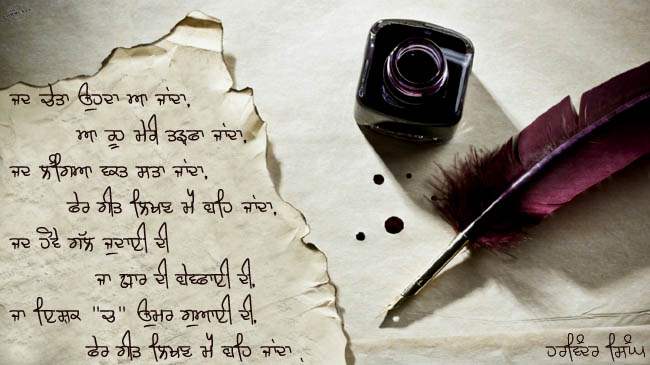 ਜਦ ਚੇਤਾ ਉਹਦਾ ਆ ਜਾਂਦਾ,
ਆ ਰੂਹ ਮੇਰੀ ਤੜਫਾ ਜਾਂਦਾ,
ਜਦ ਲੰਗਿਆ ਵਕਤ ਸਤਾ ਜਾਂਦਾ,
ਫੇਰ ਗੀਤ ਲਿਖਣ ਮੈਂ ਬਹਿ ਜਾਂਦਾ,
ਜਦ ਹੋਵੇ ਗੱਲ ਜੁਦਾਈ ਦੀ
ਜਾ ਯਾਰ ਦੀ ਬੇਵਫਾਈ ਦੀ,
ਜਾ ਇਸ਼ਕ "ਚ" ਉਮਰ ਗੁਆਈ ਦੀ,
ਫੇਰ ਗੀਤ ਲਿਖਣ ਮੈਂ ਬਹਿ ਜਾਂਦਾ,
ਹਰਵਿੰਦਰ ਸਿੰਘ